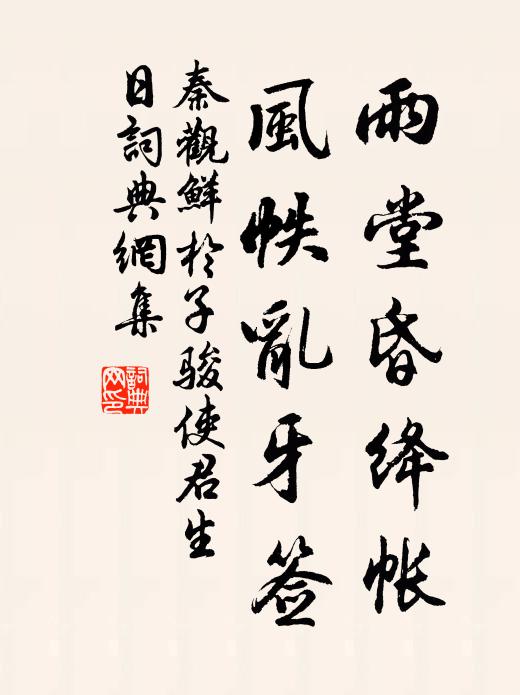 雨堂昏绛帐
風帙亂牙签
秦觀鮮於子骏使君生
日詞典網集
詞典
网印